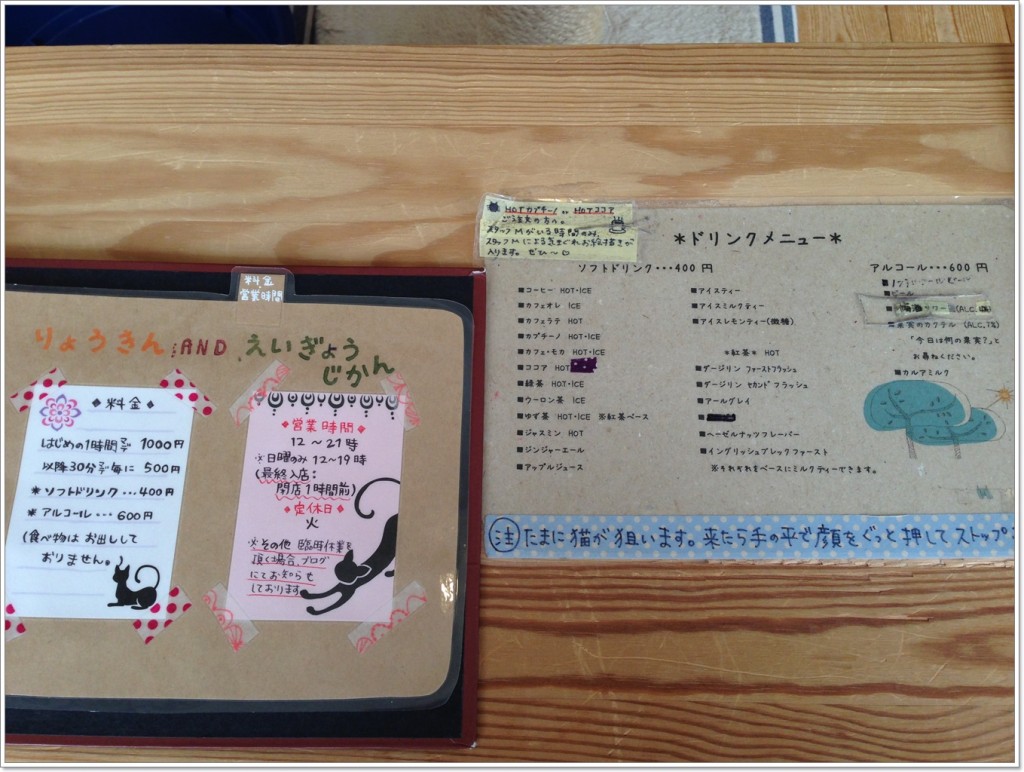 料金
営業時間
りょうきん AND えいぎょう
じかん
◆料金◆
はじめの1時間で 1000円
以降30分毎に 500円
＊ソフトドリンク…400円
＊アルコール…600円
(食べ物はお出しして
おりません。
◆営業時間◆
12〜21時
※日曜のみ12〜19時
(最終入店:
閉店1時間前)
◆定休日◆
火
※その他 臨時休業を
頂く場合、ブログ
にてお知らせ
しております
HOTカプチーノ or HOTココア
ご注文の方へ。
スタッフMがいる時間のみ、
スタッフMによる気まぐれお絵描きが
入ります。ぜひ〜
＊ドリンクメニュー＊
ソフトドリンク・・・400円
■コーヒー HOT・ICE
■カフェオレ ICE
■カフェラテ HOT
■カプチーノ HOT・ICE
■カフェ・モカ HOT・ICE
■ココア HOT
■緑茶 HOT・ICE
■ウーロン茶 ICE
■ゆず茶 HOT・ICE ※紅茶ベース
■ジャスミン HOT
■ジンジャーエール
■アップルジュース
■アイスティー
■アイスミルクティー
■アイスレモンティー(微糖)
※紅茶※ HOT
■ダージリン ファーストフラッシュ
■ダージリン セカンドフラッシュ
■アールグレイ
■ヘーゼルナッツフレーバー
■イングリッシュブレックファースト
※それぞれをベースにミルクティーできます。
アルコール・・・600円
■ノンアルコールビール
■ビール
サワー (ALC.
■果実のカクテル (ALC.
「今日は何の果実?」って
お尋ねください。
■カルアミルク
注 たまに猫が狙います。来たら手の平で顔をぐっと押してストップ